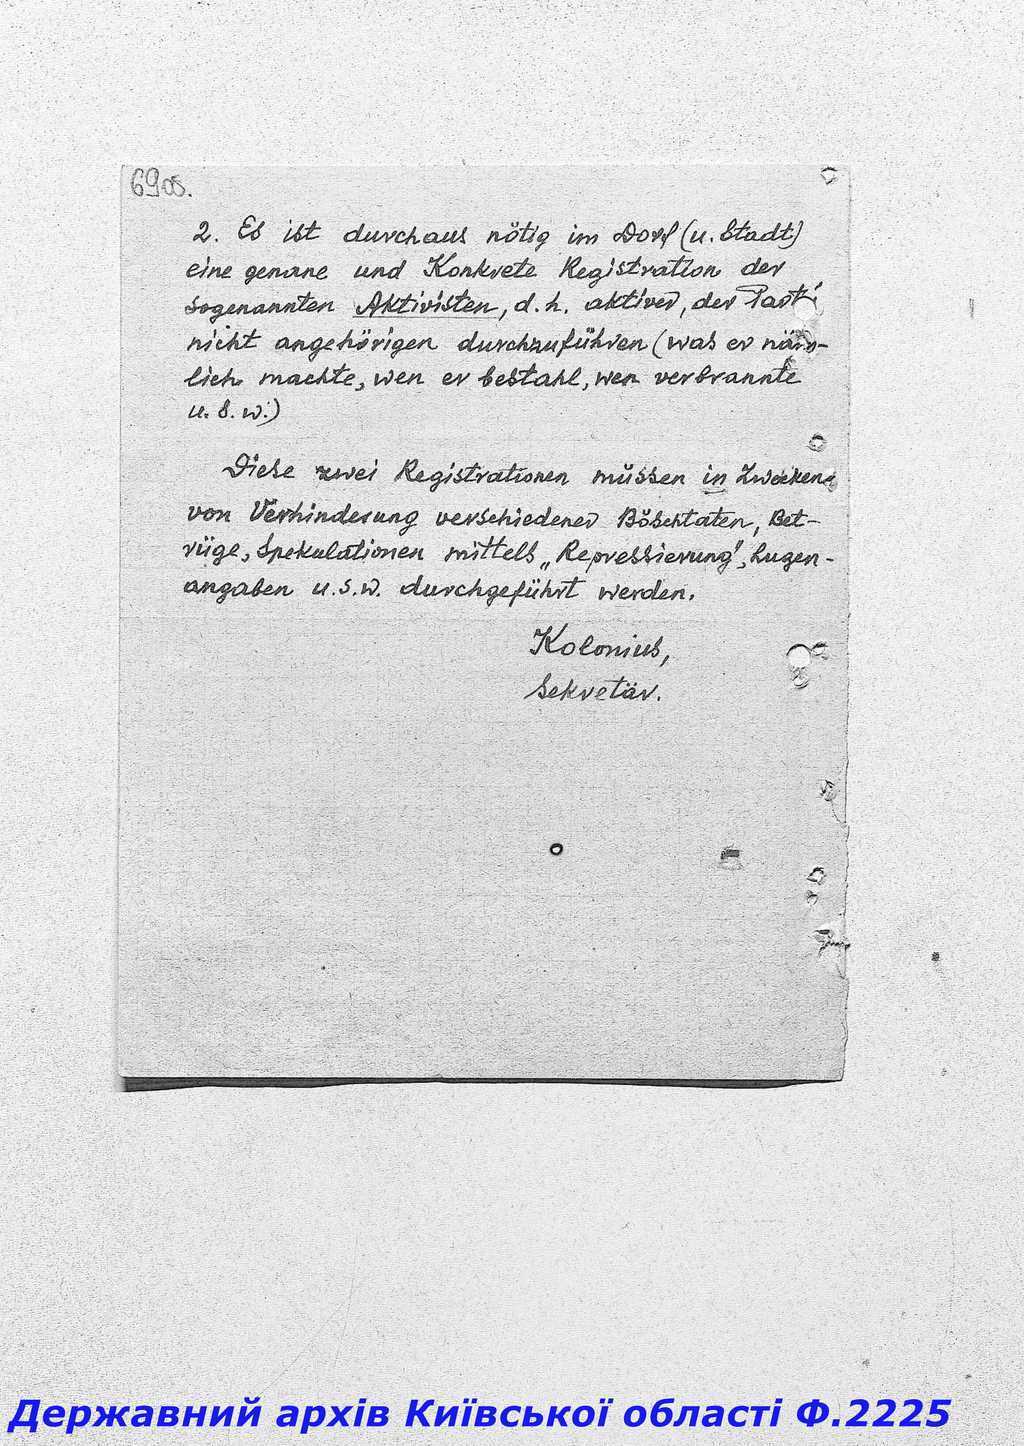 69об.
2. Es ist durchaus nötig im Dorf (u. Stadt)
eine genaue und Konkrete Registration der
sogenannten Aktivisten, d. h. aktiver, der Partei
nicht angehörigen durchzuführen (was er näm-
lich machte, wen er bestahl, wen verbrannte
u. s. w.)
Diese zwei Registrationen müssen in Zwecken
von Verhinderung verschiedener Böschtaten, Bet-
rüge, Spekulationen mittels „Repressierung", Lugen-
angaben u.s.w. durchgeführt werden.
Kolonius,
Sekretär.
Державний архів Київської області Ф.2225